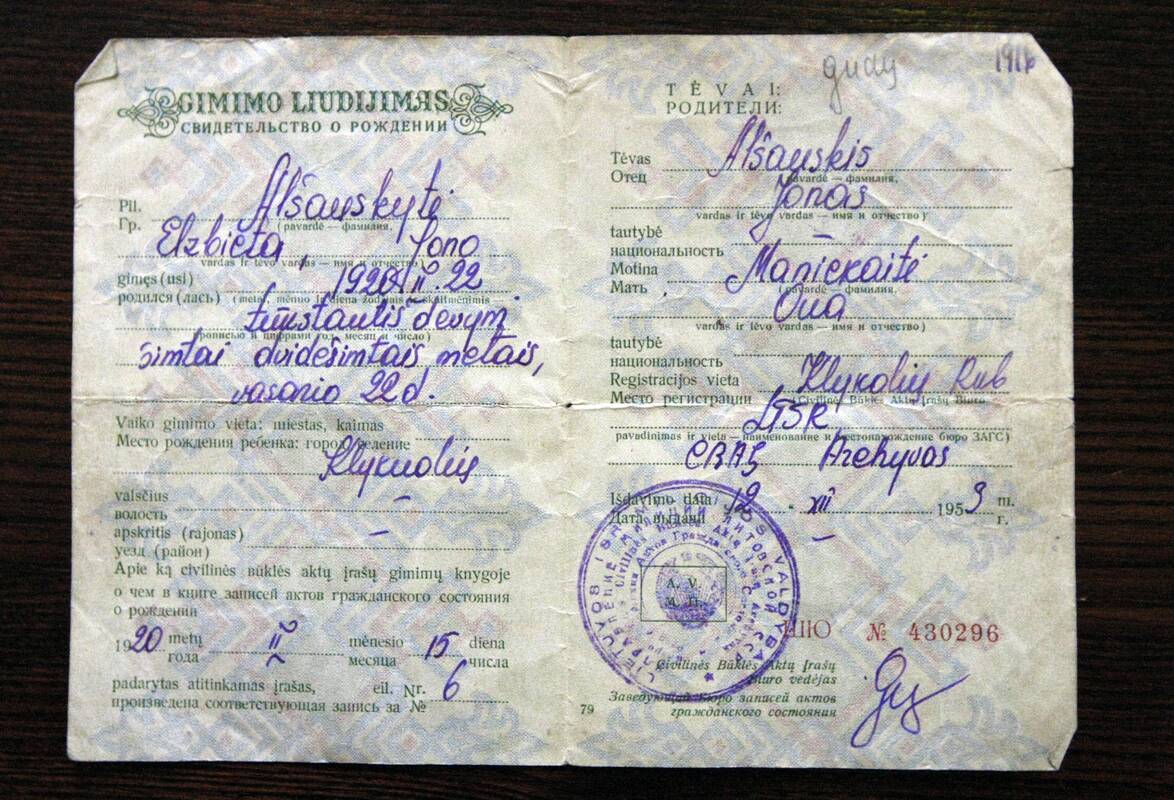 GIMIMO LIUDIJIMAS
СВИДЕТЕЛЬСТВО О РОЖДЕНИИ
Pil. Alšauskytė
Гр. (pavardė — фамилия,
Elzbieta, Jono
vardas ir tėvo vardas — имя и отчество)
gimęs (usi) 1920 II. 22
родился (лась) (metai, mėnuo ir diena žodžiais ir skaitmenimis
tūkstantis devyni
прописью и цифрами год, месяц и число)
šimtai dvidešimtais metais,
vasario 22 d.
Vaiko gimimo vieta: miestas, kaimas
Место рождения ребенка: город, селение
Klykuolių
valsčius —
волость
apskritis (rajonas) —
уезд (район)
Apie ką civilinės būklės aktų įrašų gimimų knygoje
о чем в книге записей актов гражданского состояния
о рождении
1920 metų II mėnesio 15 diena
года месяца числа
padarytas atitinkamas įrašas, eil. Nr. 6
произведена соответствующая запись за №
gudų
1916
TĖVAI:
РОДИТЕЛИ:
Tėvas Alšauskis
Отец (pavardė — фамилия,
Jonas
vardas ir tėvo vardas — имя и отчество)
tautybė —
национальность
Motina Manickaitė
Мать (pavardė — фамилия,
Ona
vardas ir tėvo vardas — имя и отчество)
tautybė
национальность
Registracijos vieta Klykolių
Место регистрации (Civilinės Būklės Aktų Įrašų Biuro
LTSR
pavadinimas ir vieta — наименование и местонахождение бюро ЗАГС)
CBAĮ Archyvas
Išdavimo data 12 " XII 1959 m.
Дата выдачи г.
A. V.
М. П.
ШО № 430296
Civilinės Būklės Aktų Įrašų
Biuro vedėjas
Заведующий Бюро записей актов
гражданского состояния
79